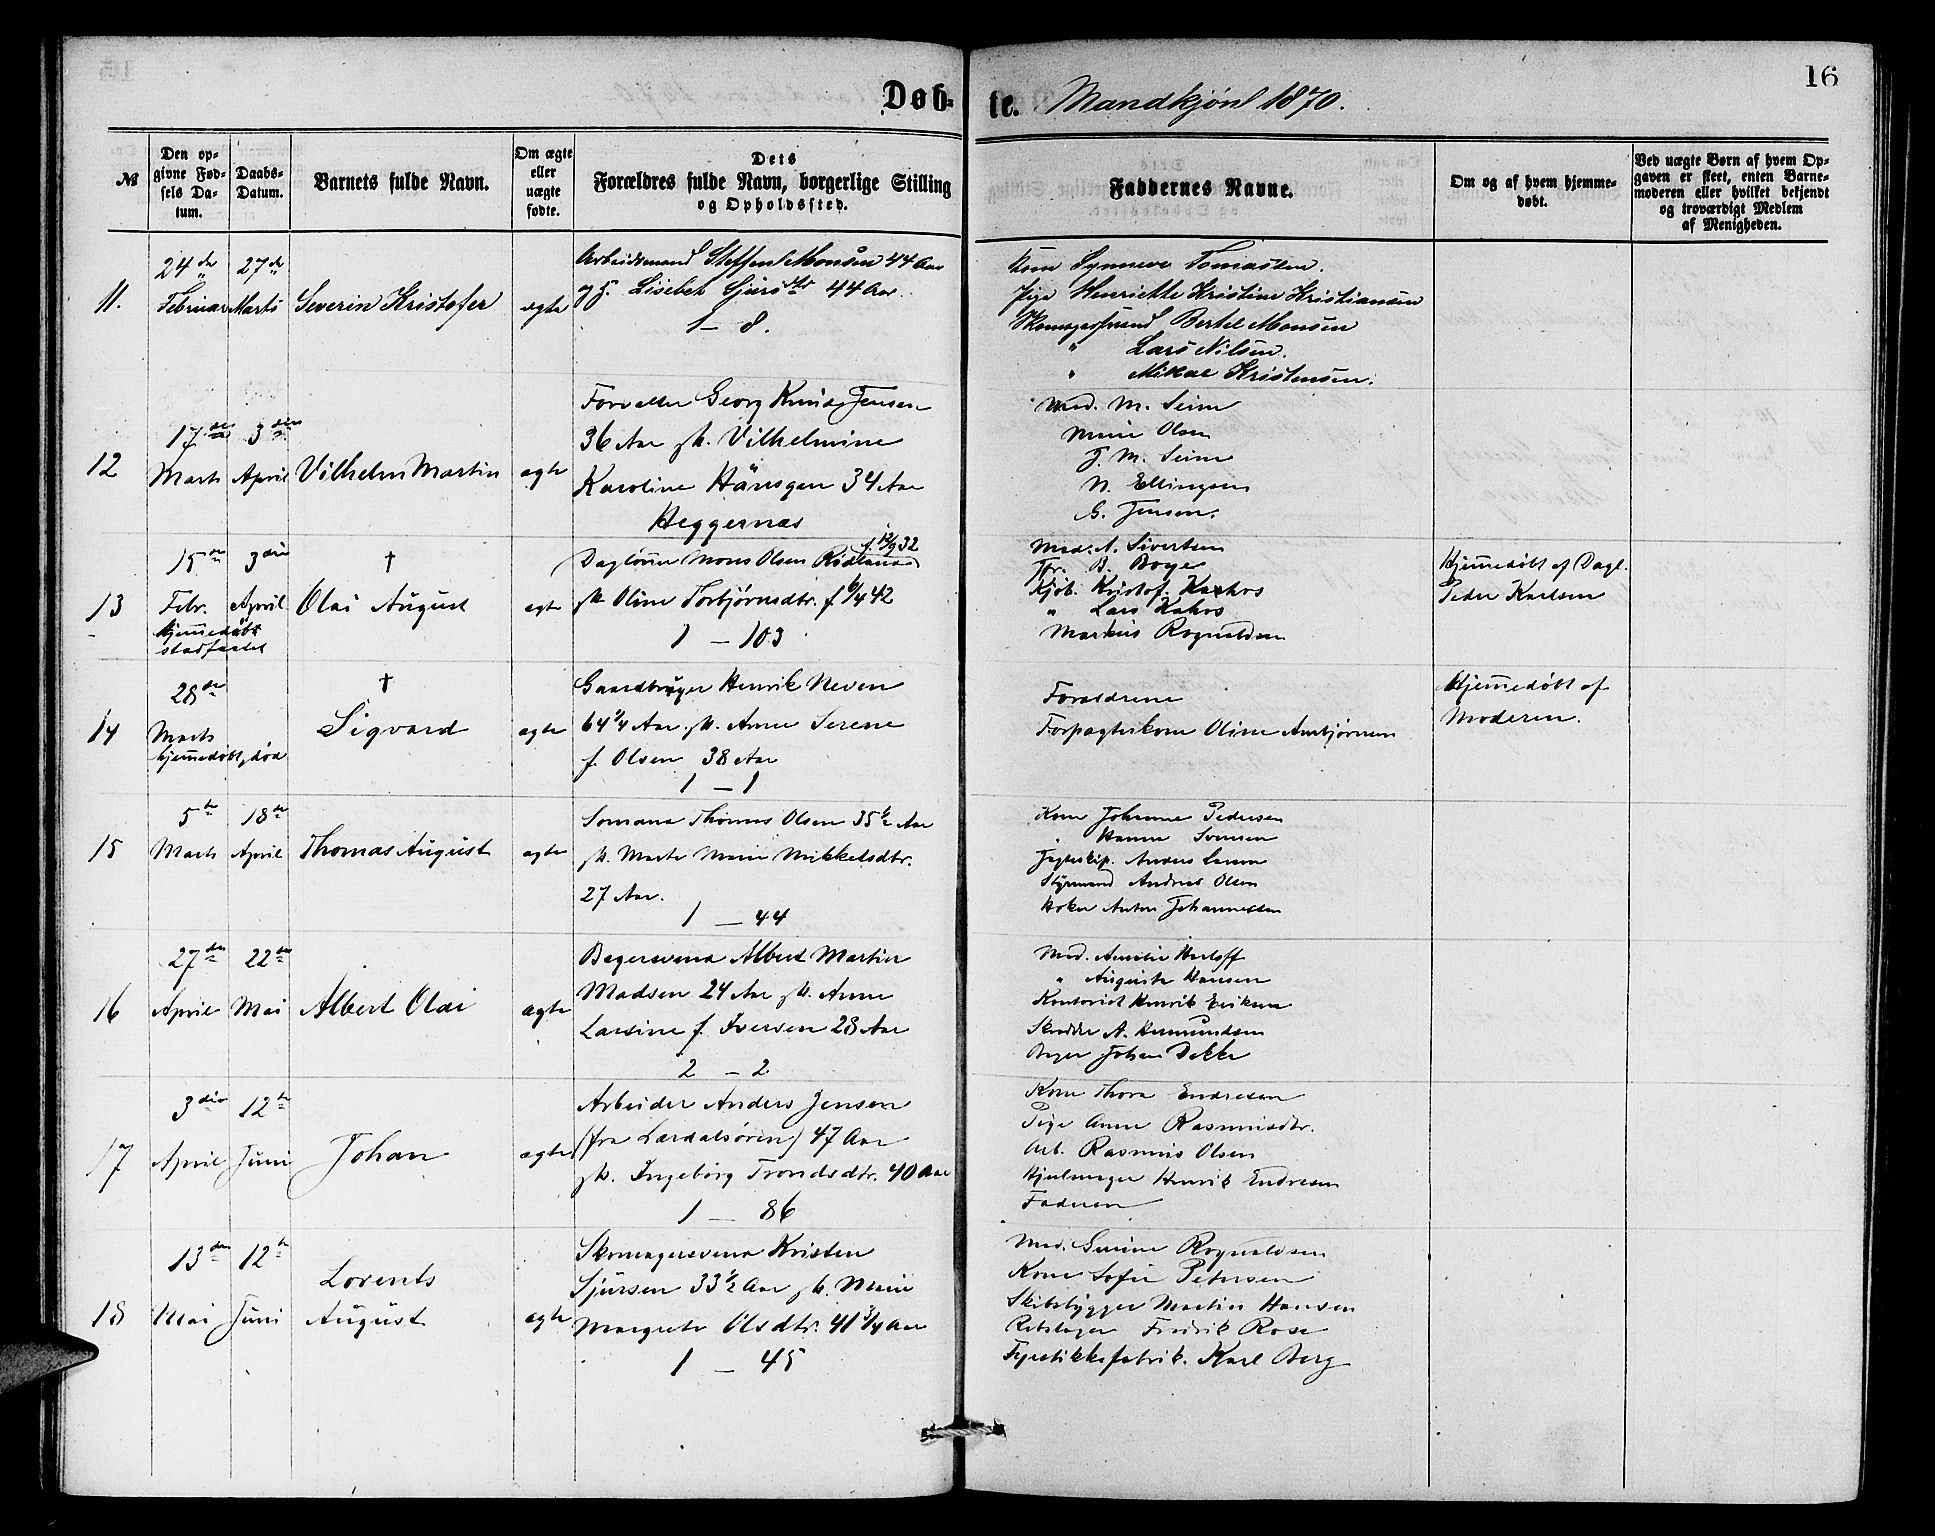 16
Døb-te. Mandkjøn 1870.
№
Den op-
givne Fød-
sels Da-
tum.
Daabs-
Datum.
Barnets fulde Navn.
Om ægte
eller
uægte
fødte.
Dets
Forældres fulde Navn, borgerlige Stilling
og Opholdssted.
Faddernes Navne.
Om og af hvem hjemme-
døbt.
Ved uægte Børn af hvem Op-
gaven er skeet, enten Barne-
moderen eller hvilket bekjendt
og troværdigt Medlem
af Menigheden.
11.
24de
Februar
27de
Marts
Severin Kristofer
ægte
Arbeidsmand Steffen Monsen 44 Aar
og H. Lisebet Sjursdtr 44 Aar.
1 - 8.
Kone Synneve Tomasten.
Pige Henriette Kristine Kristiansen
Skomagersvend Bertel Monsen
" Lars Nilsen.
" Mikal Kristensen.
12
17de
Marts
3die
April
Vilhelm Martin
ægte
Forvalter Georg Knud Jensen
36 Aar h. Vilhelmine
Karoline Hänsgen 34 Aar
Heggernæs
Mad. M. Seim
Marie Olsen
J. M. Seim
N. Ellingsen
G. Jensen.
13
15de
Febr.
hjemmedøbt
stadfæstet
3die
April
†
Olai August
ægte
f. 12/9 32
Dagløner Mons Olsen Rødland
h. Oline Torbjørnsdtr. f. 6/4 42
1 - 103
Mad. A. Sivertsen
B. Boge
Kjøb. Kristof. Kahrs
" Lars Kahrs
Markus Rognaldsen
Hjemmedøbt af Dagl.
Peder Karlsen
14
28de
Marts
hjemmedøbt, død
†
Sigvard
ægte
Gaardbruger Henrik Neven
64 1/4 Aar h. Anne Serene
f. Olsen 38 Aar
1 - 1
Forældrene
Forpagterkone Oline Arnbjørnsen
Hjemmedøbt af
Moderen.
15
5te
Marts
18de
April
Thomas August
ægte
Sømand Thomas Olsen 35 1/2 Aar
h. Marte Marie Mikkelsdtr.
27 Aar.
1 - 44
Kone Johanne Pedersen
" Hanne Svensen
Jagteskip. Anders Larsen
Styrmand Andreas Olsen
Høker Anton Johannessen
16
27de
April
22de
Mai
Albert Olai
ægte
Bagersvend Albert Martin
Madsen 24 Aar h. Anne
Larsine f. Iversen 28 Aar
2 - 2
Mad. Amalie Herloff
" Augusta Hansen
Kontorist Henrik Eriksen
Skrædder A. Hermundsen
Bager Johan Dekke
17
3die
April
12te
Juni
Johan
ægte
Arbeider Anders Jensen
(fra Lærdalsøren) 47 Aar
h. Ingebørg Trondsdtr. 40 Aar
1 - 86
Kone Thora Endresen
Pige Anne Rasmusdtr.
Arb. Rasmus Olsen
Hjulmager Henrik Endresen
Faderen
18
13de
Mai
12te
Juni
Lorents
August
ægte
Skomagersvend Kristen
Sjursen 33 1/2 Aar h. Marie
Margrete Olsdtr. 41 3/4 Aar
1 - 45
Mad. Gurine Rognaldsen
Kone Sofie Petersen
Skibsbygger Martin Hansen
Rebslager Fredrik Rose
Fyrstikkefabrik. Karl Berg